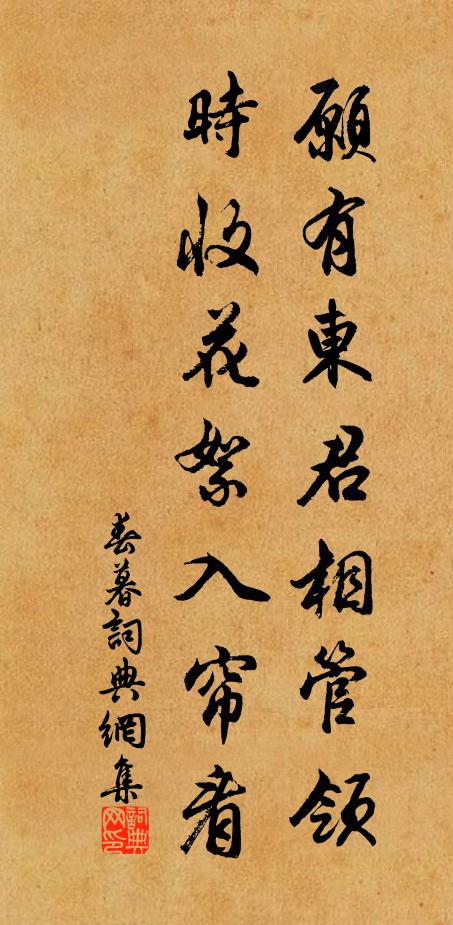 願有東君相管領
時收花絮入帘看
春暮詞典網集
詞典网印